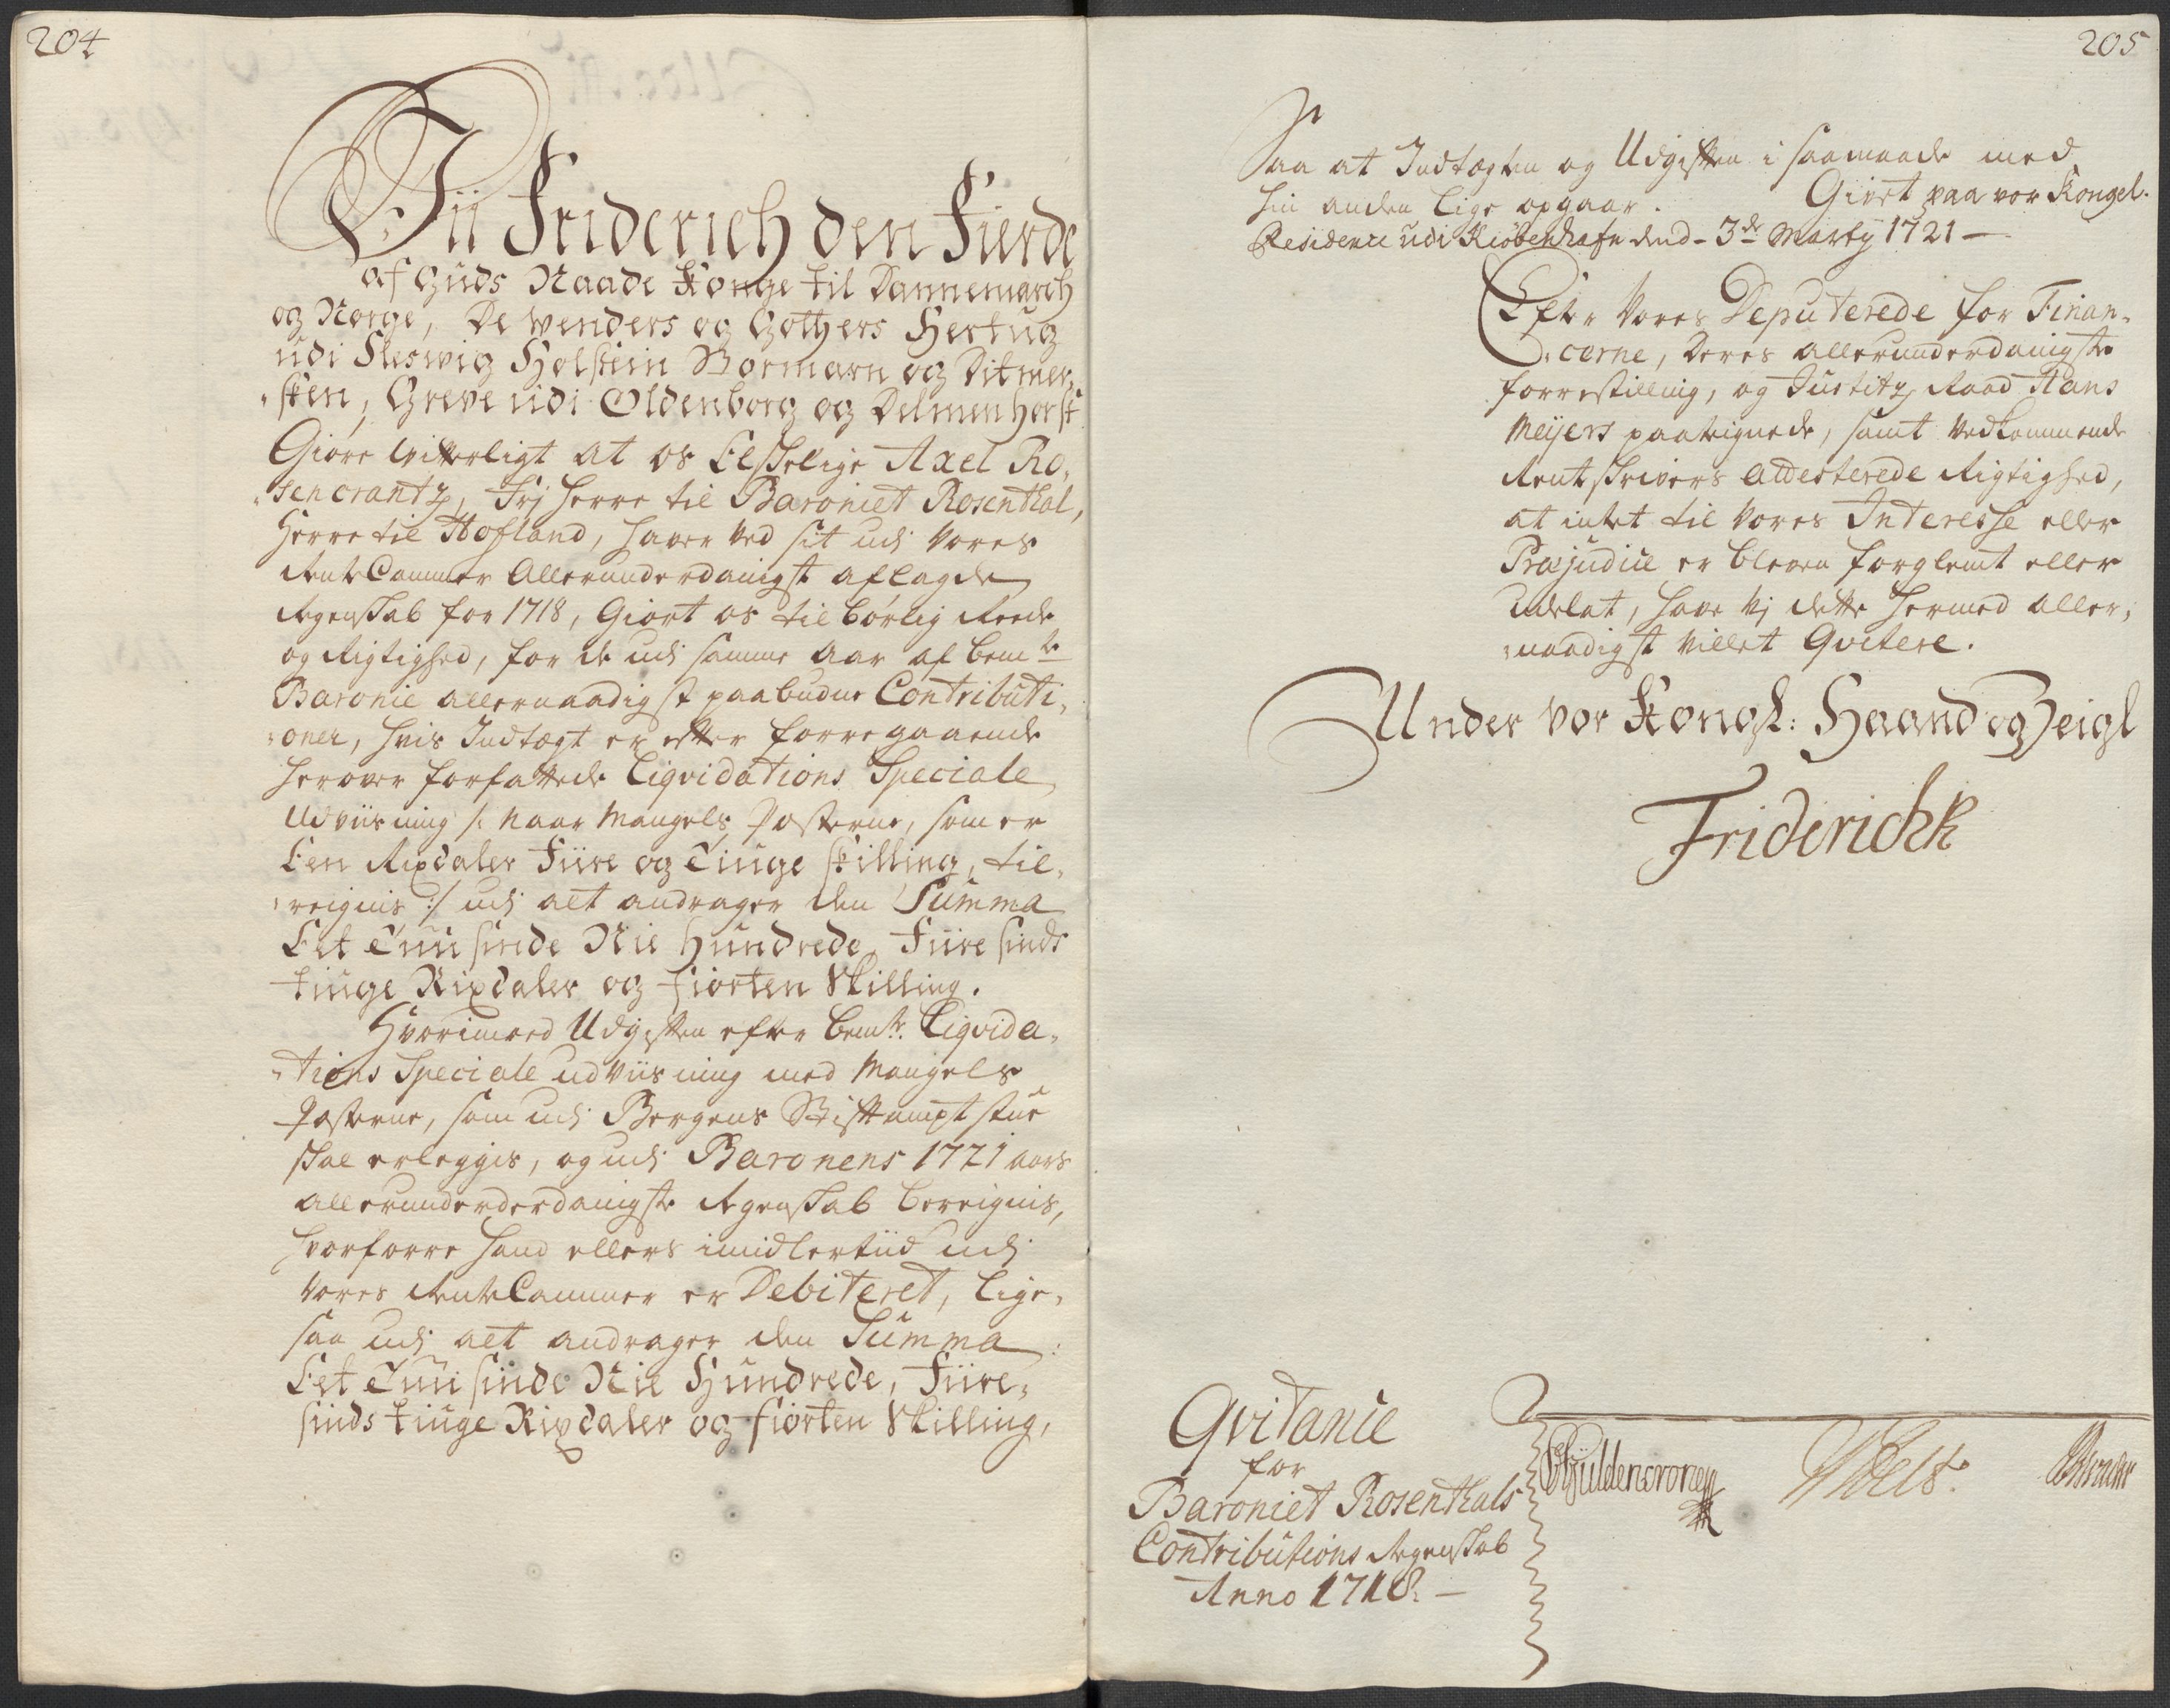 204
Vii Friderich den Fierde
af Guds Naade Konge til Dannemarch
og Norge, De Wenders og Gothers Hertug
udi Slesvig Holstein Stormarn og Ditmer,
,,sken, Greve udi Oldenborg og Delmenhorst
Giøre Witterligt at os Elskelige Axel Ro,
,,sencrantz, Frj Herre til Baroniet Rosenthal,
Herre til Hofland, haver ved sit udj Vores
RenteCammer Allerunderdanigst aflagde
Regenskab for 1718, Giort os til børlig Reede
og Rigtighed, for de udj samme Aar af bemte
Baronie allernaadigst paabudne Contributi,
,,oner, hvis Indtægt er efter forregaaende
herover forfattede Liqvidations Speciale
Udviisning /: naar Mangels Posterne, som er
Een Rixdaler Fiire og Tiuge skilling, til,
,,reignis :/ udj alt andrager den Summa
Eet Tuusinde Nie Hundrede Fiire sinds
tiuge Rixdaler og fiorten Skilling.
Hvorimod Udgiften efter bemte Liqvida,
,,tions Speciale udviisning med Mangels
Posterne, som udj Bergens Stiftampt stue
skal erleggis, og udj Baronens 1721 aars
allerunderderdanigste Regenskab bereignis,
hvorforre hand ellers imidlertiid udj
Vores RenteCammer er Debiteret, lige,
saa udj alt andrager den Summa
Eet Tuusinde Nie Hundrede, Fiire,
sinds tiuge Rixdaler og fiorten Skilling,
205
Saa at Indtægten og Udgiften i saamaade med
hin anden lige opgaar. Givet paa vor Kongel.
Residence udi Kiøbenhafn dend 3de Marty 1721 –
Efter Vores Deputerede for Finan,
,,cerne, Deres allerunderdanigste
forrestilling, og Justitz Raad Hans
Meÿers paateignede, samt vedkommende
Rentskrivers attesterede Rigtighed,
at intet til Vores Interesse eller
Præjudice er bleven forglemt eller
udelat, have Vj dette hermed aller,
,,naadigst villet Qvitere.
Under vor Kongl: Haand og Zeigl
Friderich R
Qvitance
for
Baroniet Rosenthals
Contributions Regenskab
Anno 1718. –
CGüldencrone